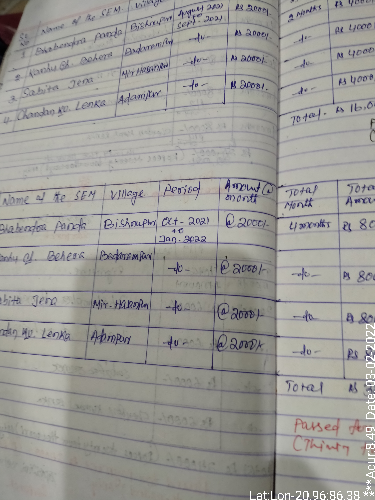 Sl. No Name of the SEM Village
1. Bhabendra Panda Bishnupur August 2021 Sept-2021 @ 2000/-
2. Behera Badarampur -do- ₨ 2000/- ₨ 4000
3. Sabita Jena Mir-Hasanpur -do- ₨ 2000/- ₨ 4000
4. Chandan Ku. Lenka Adampur -do- ₨ 2000/- ₨ 4000
2 Months
Total- ₨ 16,0
Name of the SEM Village Period Amount @ month Total Month Total Amou
Bhabendra Panda Bishnupur Oct-2021 to Jan-2022 @ 2000/- 4 months ₨ 80
Behera Badarampur -do- @ 2000/- -do- ₨ 80
abita Jena Mir-Hasanpur -do- @ 2000/- -do- ₨ 80
ndan Ku. Lenka Adampur -do- @ 2000/- -do- ₨
Total ₨
Passed for
(Thirty
***Acur:8.49 Date:03-02-2022
Lat:Lon-20.96:86.38***